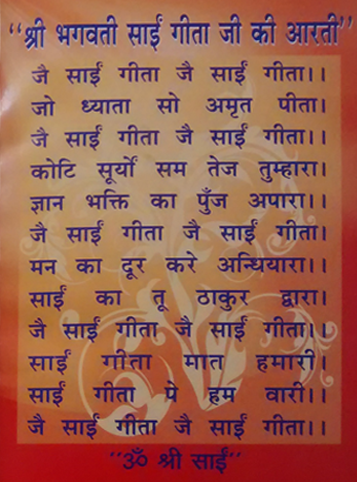 “श्री भगवती साईं गीता जी की आरती”
जै साईं गीता जै साईं गीता।।
जो ध्याता सो अमृत पीता।
जै साईं गीता जै साईं गीता।।
कोटि सूर्यों सम तेज तुम्हारा।
ज्ञान भक्ति का पुँज अपारा।।
जै साईं गीता जै साईं गीता।
मन का दूर करे अन्धियारा।।
साईं का तू ठाकुर द्वारा।
जै साईं गीता जै साईं गीता।।
साईं गीता मात हमारी।
साईं गीता पे हम वारी।।
जै साईं गीता जै साईं गीता।।
"ॐ श्री साईं"